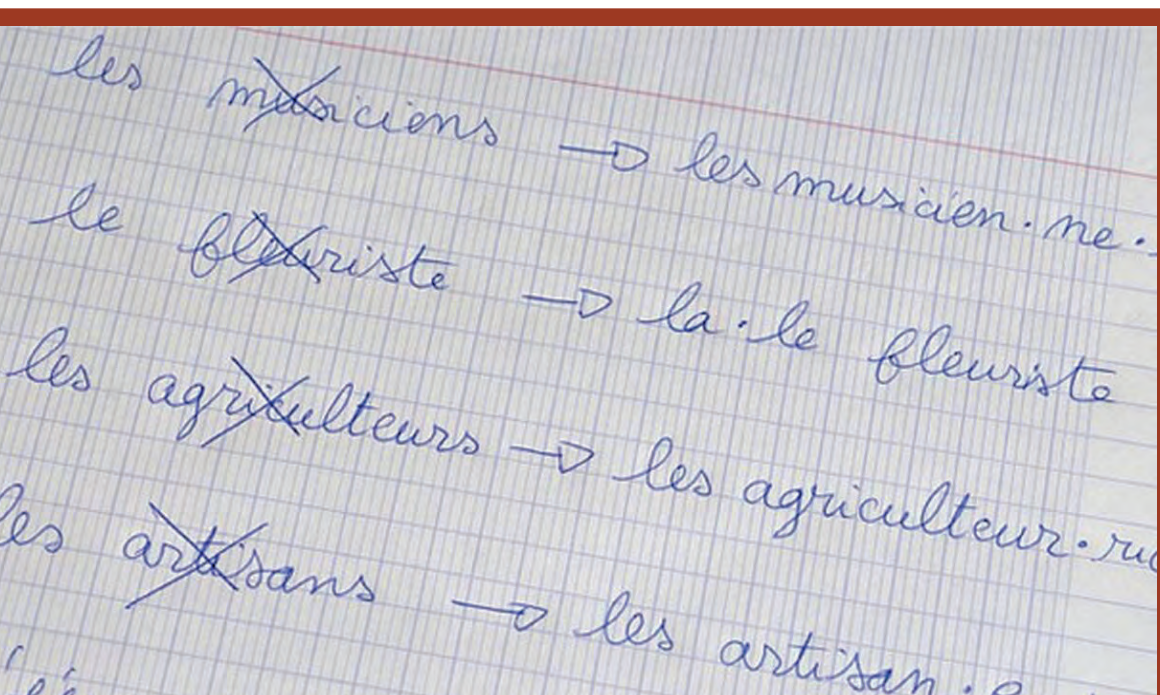 les musiciens → les musicien·ne·
le fleuriste → la·le fleuriste
les agriculteurs → les agriculteur·ric
les artisans → les artisan·e